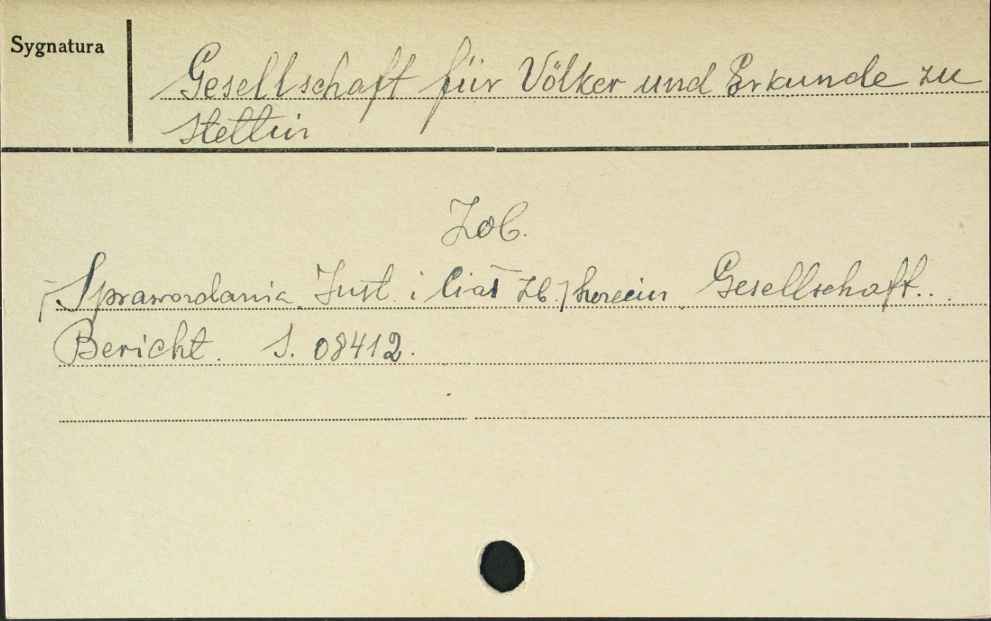 Sygnatura
Gesellschaft für Völker und Erkunde zu
Stettin
Zob.
[Sprawozdania Inst. i Ciał zb.] Gesellschaft..
Bericht. S. 08412.